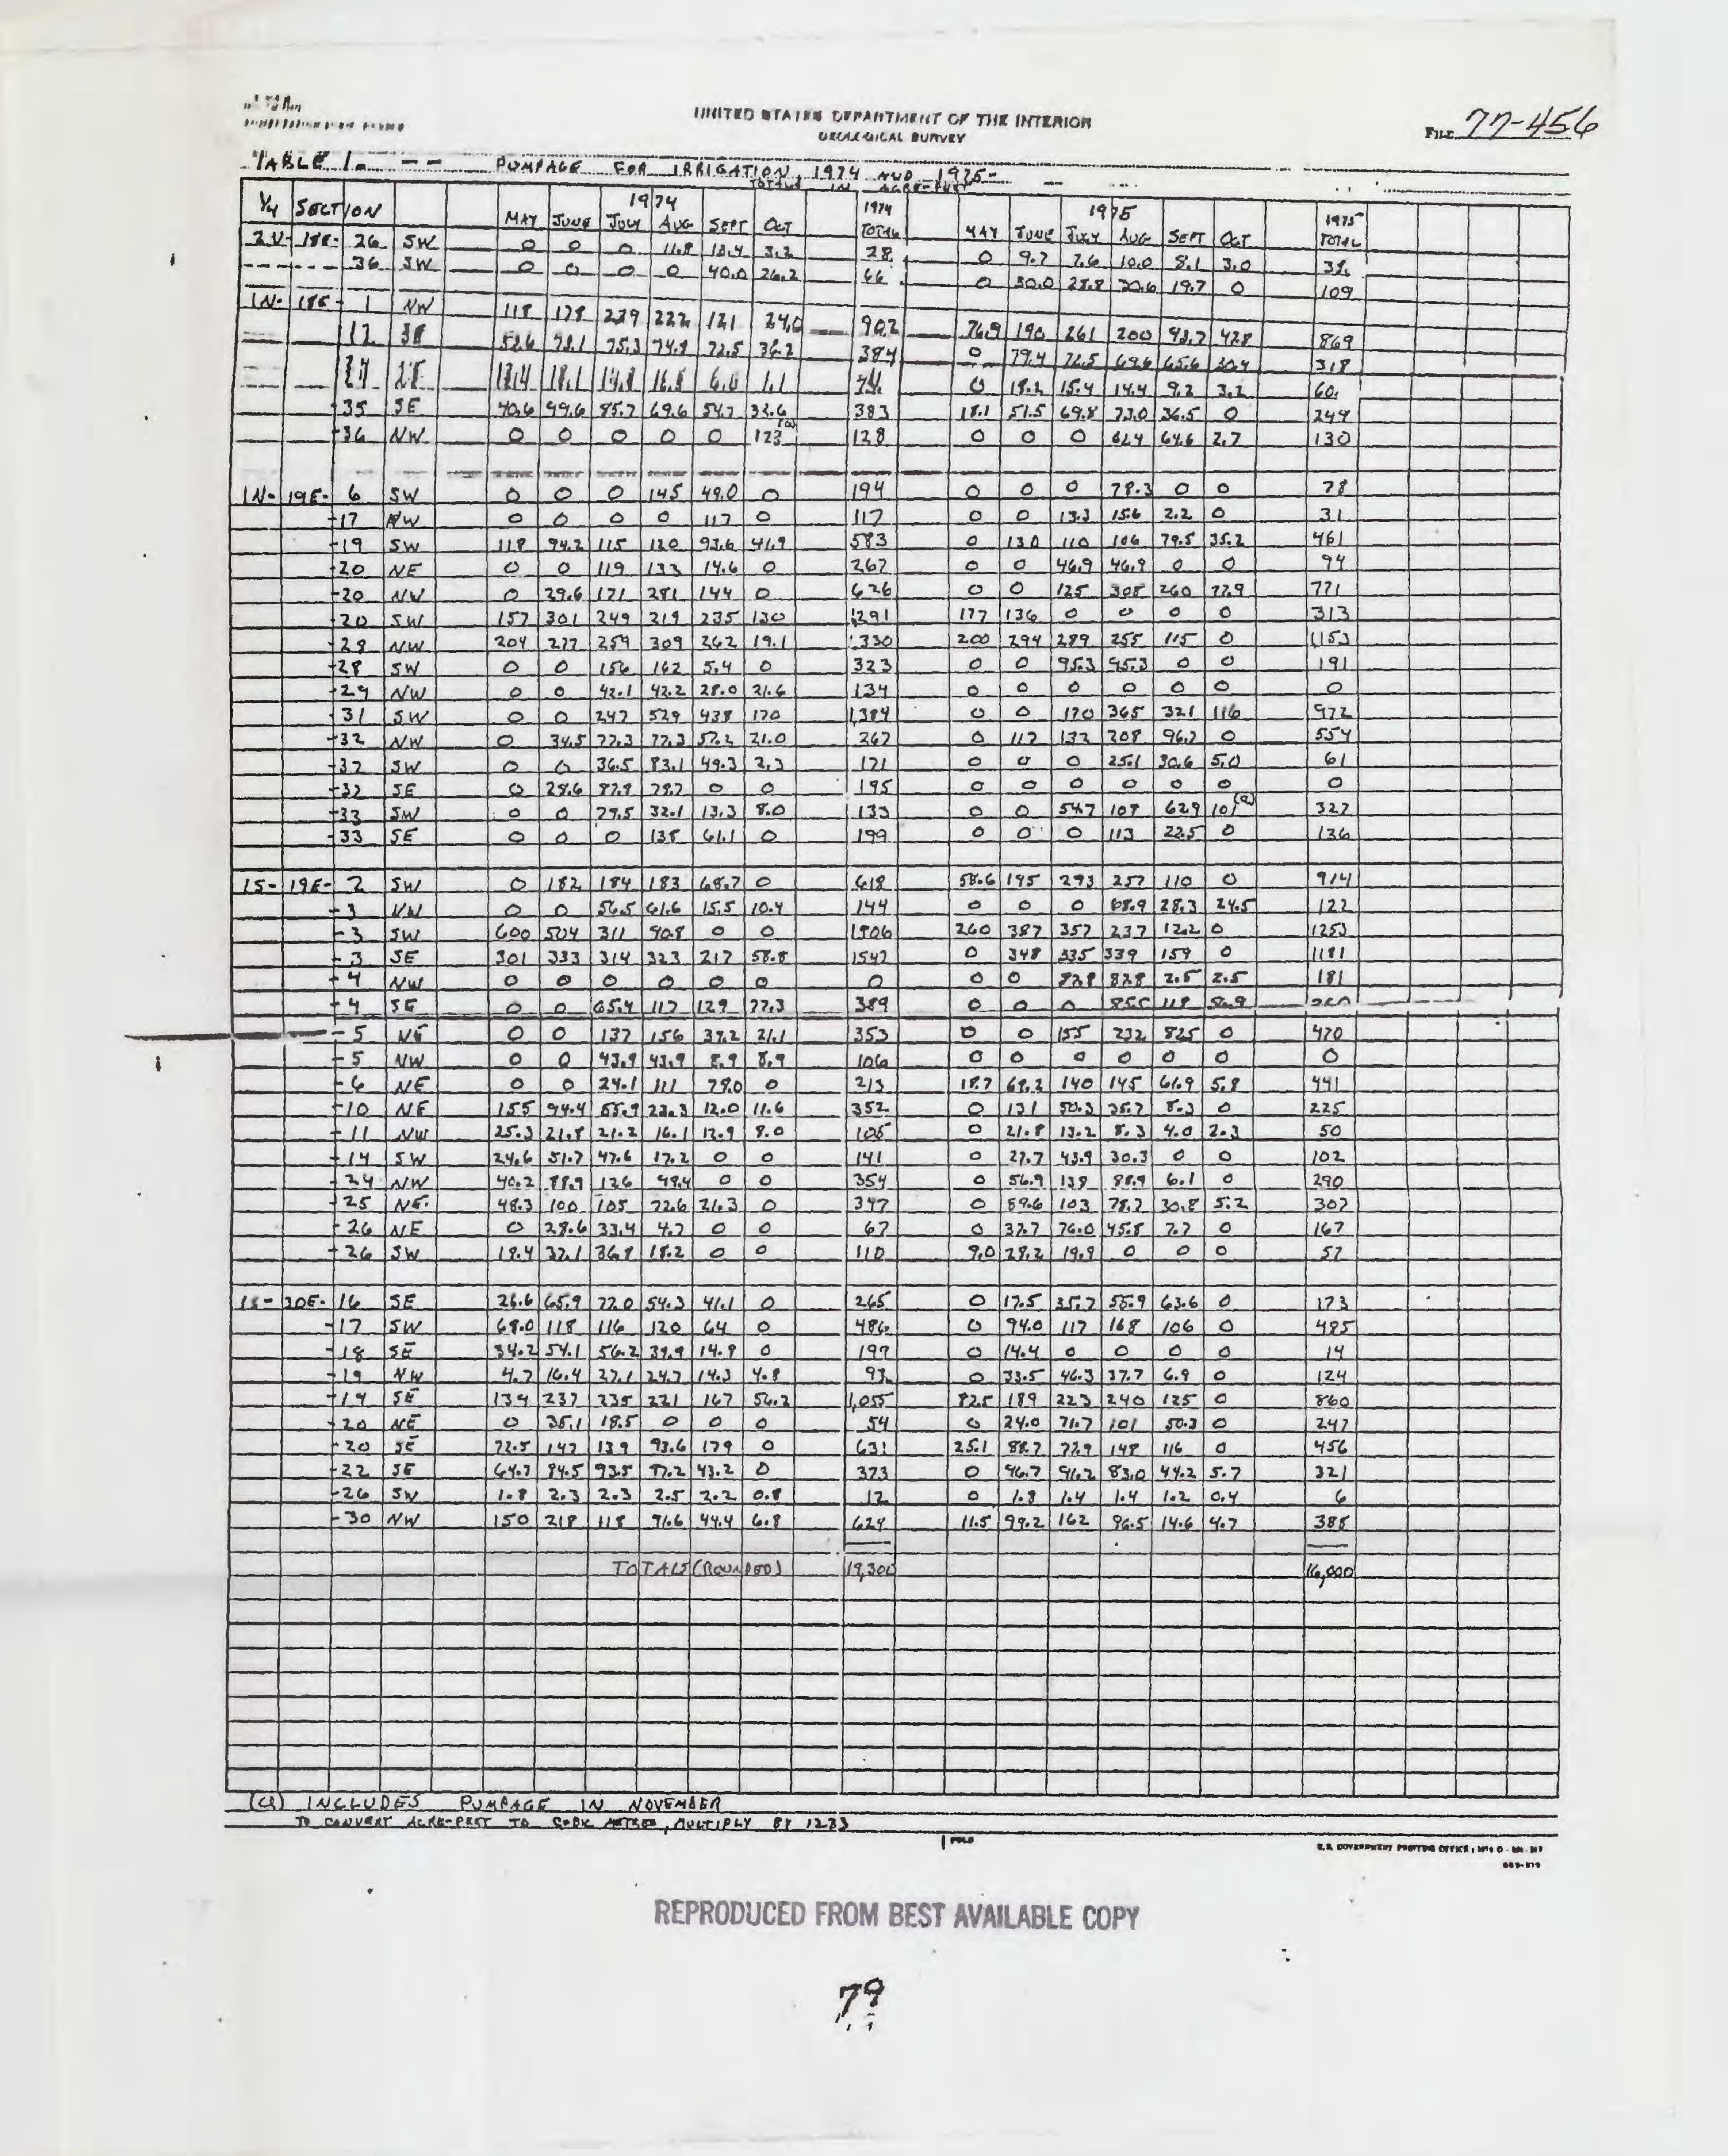 UNITED STATES DEPARTMENT OF THE INTERIOR
GEOLOGICAL SURVEY
FILE 77-456
TABLE 1. -- PUMPAGE FOR IRRIGATION, 1974 AND 1975-
TOTALS IN ACRE-FEET
1/4 SECTION 1974 1974 1975 1975
MAY JUNE JULY AUG SEPT OCT TOTAL MAY JUNE JULY AUG SEPT OCT TOTAL
26 SW 0 0 0 11.8 13.4 3.2 28 0 9.7 7.6 10.0 8.1 3.0 38
36 SW 0 0 0 0 40.0 26.2 66 0 30.0 28.8 30.6 19.7 0 109
1N- 18E- 1 NW 118 178 239 222 121 24.0 902 76.9 190 261 200 93.7 42.8 869
12 SE 52.6 73.1 75.3 74.9 72.5 36.2 384 0 79.4 72.5 69.6 65.6 30.4 318
0 18.2 15.4 14.4 9.2 3.2 60
35 SE 40.6 99.6 85.7 69.6 54.7 32.6 383 18.1 51.5 69.8 73.0 36.5 0 249
36 NW 0 0 0 0 0 (a) 128 0 0 0 62.4 64.6 2.7 130
1N- 19E- 6 SW 0 0 0 145 49.0 0 194 0 0 0 78.3 0 0 78
17 NW 0 0 0 0 117 0 117 0 0 13.3 15.6 2.2 0 31
19 SW 118 94.2 115 120 93.6 41.9 583 0 130 110 106 79.5 35.2 461
20 NE 0 0 119 133 14.6 0 267 0 0 46.9 46.9 0 0 94
20 NW 0 29.6 171 281 144 0 626 0 0 125 308 260 77.9 771
20 SW 157 301 249 219 235 130 1291 177 136 0 0 0 0 313
28 NW 204 277 259 309 262 19.1 1330 200 294 289 255 115 0 1153
28 SW 0 0 156 162 5.4 0 323 0 0 95.3 95.3 0 0 191
29 NW 0 0 42.1 42.2 28.0 21.6 134 0 0 0 0 0 0 0
31 SW 0 0 247 529 438 170 1,384 0 0 170 365 321 116 972
32 NW 0 34.5 77.3 77.3 57.2 21.0 267 0 117 132 208 96.7 0 554
32 SW 0 0 36.5 83.1 49.3 2.3 171 0 0 0 25.1 30.6 5.0 61
32 SE 0 28.6 87.9 78.7 0 0 195 0 0 0 0 0 0 0
33 SW 0 0 79.5 32.1 13.3 8.0 133 0 0 54.7 108 62.9 101(a) 327
33 SE 0 0 0 138 61.1 0 199 0 0 0 113 22.5 0 136
1S- 19E- 2 SW 0 182 184 183 68.7 0 618 58.6 195 293 257 110 0 914
3 NW 0 0 56.5 61.6 15.5 10.4 144 0 0 0 68.9 28.3 24.5 122
3 SW 600 504 311 90.8 0 0 1506 260 387 357 237 12.2 0 1253
3 SE 301 333 314 323 217 58.8 1547 0 348 335 339 159 0 1181
4 NW 0 0 0 0 0 0 0 0 0 82.8 82.8 2.5 2.5 181
4 SE 0 0 65.4 117 129 77.3 389 0 0 0 85.5 118 56.9
5 NE 0 0 137 156 39.2 21.1 353 0 0 155 232 82.5 0 470
5 NW 0 0 43.9 43.9 8.9 8.9 106 0 0 0 0 0 0 0
6 NE 0 0 24.1 111 78.0 0 213 18.7 69.2 140 145 61.9 5.8 441
10 NE 155 94.4 55.9 23.3 12.0 11.6 352 0 131 50.3 35.7 8.3 0 225
11 NW 25.3 21.8 21.2 16.1 12.9 8.0 105 0 21.8 13.2 8.3 4.0 2.3 50
14 SW 24.6 51.7 47.6 17.2 0 0 141 0 27.7 43.9 30.3 0 0 102
24 NW 40.2 88.9 126 99.4 0 0 354 0 56.9 138 88.9 6.1 0 290
25 NE 48.3 100 105 72.6 21.3 0 347 0 89.6 103 78.7 30.8 5.2 307
26 NE 0 28.6 33.4 4.7 0 0 67 0 37.7 76.0 45.8 7.7 0 167
26 SW 18.4 37.1 36.8 18.2 0 0 110 9.0 28.2 19.9 0 0 0 57
1S- 20E- 16 SE 26.6 65.9 77.0 54.3 41.1 0 265 0 17.5 35.7 55.9 63.6 0 173
17 SW 68.0 118 116 120 64 0 486 0 94.0 117 168 106 0 485
18 SE 34.2 54.1 56.2 39.9 14.9 0 199 0 14.4 0 0 0 0 14
19 NW 4.7 16.4 27.1 24.7 14.3 4.8 92 0 33.5 46.3 37.7 6.9 0 124
19 SE 139 237 235 221 167 56.2 1,055 82.5 189 223 240 125 0 860
20 NE 0 35.1 18.5 0 0 0 54 0 24.0 71.7 101 50.3 0 247
20 SE 72.5 147 139 93.6 179 0 631 25.1 88.7 77.9 148 116 0 456
22 SE 64.7 84.5 93.5 87.2 43.2 0 373 0 96.7 91.2 83.0 44.2 5.7 321
26 SW 1.8 2.3 2.3 2.5 2.2 0.8 12 0 1.8 1.4 1.4 1.2 0.4 6
30 NW 150 218 118 91.6 44.4 6.8 629 11.5 99.2 162 96.5 14.6 4.7 388
TOTALS (ROUNDED) 19,300 16,000
(a) INCLUDES PUMPAGE IN NOVEMBER
TO CONVERT ACRE-FEET TO CUBIC METRES, MULTIPLY BY 1233
U.S. GOVERNMENT PRINTING OFFICE
REPRODUCED FROM BEST AVAILABLE COPY
79